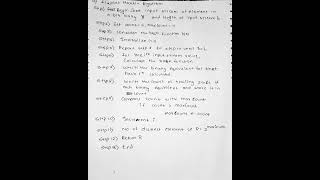 Flajolet Martin Algorithm
Step 1) Begin
input stream of element in
a bit array y and length of input stream b.
Step 2) Set count = 0, maxcount = 0
Step 3) Consider the hash function h(x)
Step 4) Initialize i=1
Step 5) Repeat step 6 to step 10 until i=b.
Step 6) for the ith input stream data,
Calculate the hash function.
Step 7) Write the binary equivalent for hash
function calculated.
Step 8) Write the count of trailing zeros of
each binary equivalent and store it in
count
Step 9) Compare count with maxcount
if count > maxcount
maxcount = count
Step 10) Increment i
Step 11) No of distinct elements is R = 2maxcount
Step 12) Return R
Step 13) End